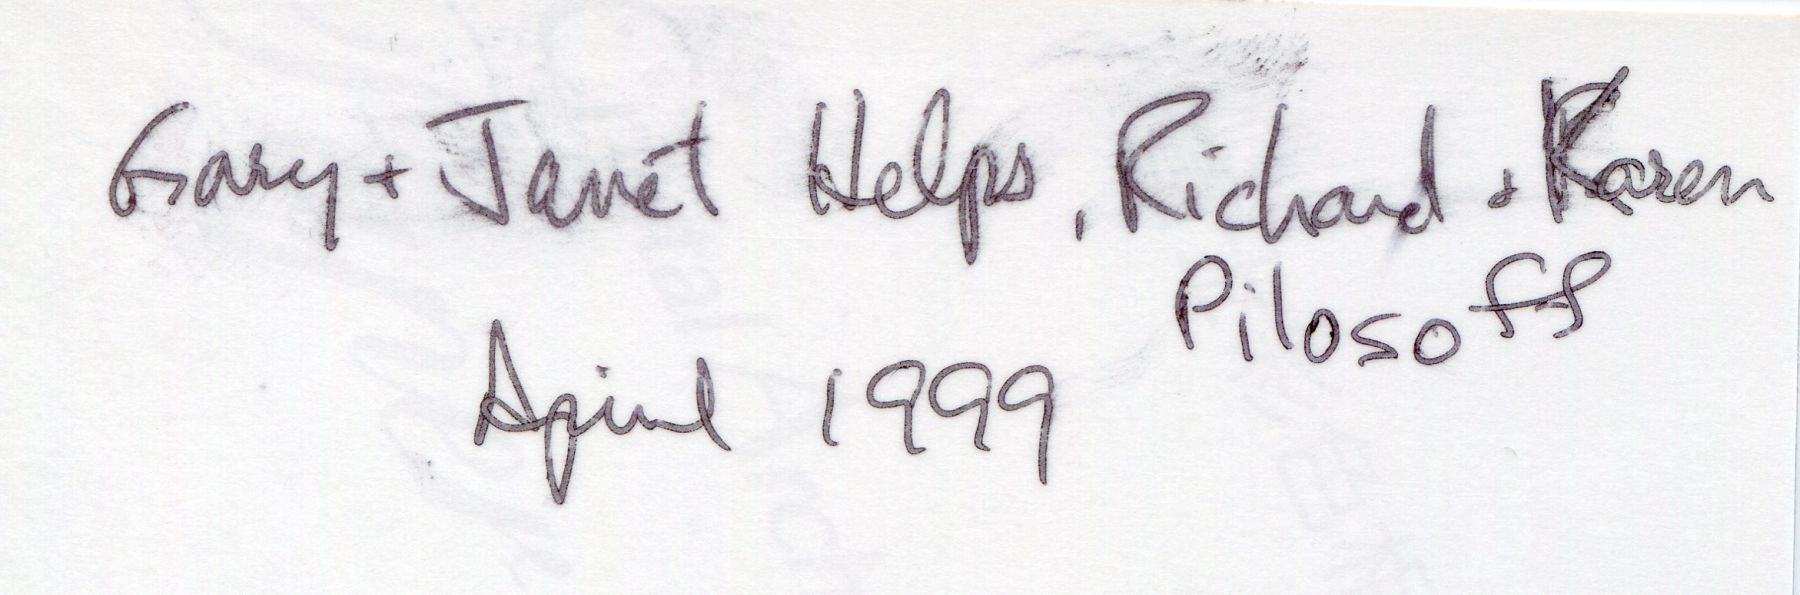 Gary + Janet Helps, Richard + Karen
Pilosoff
April 1999